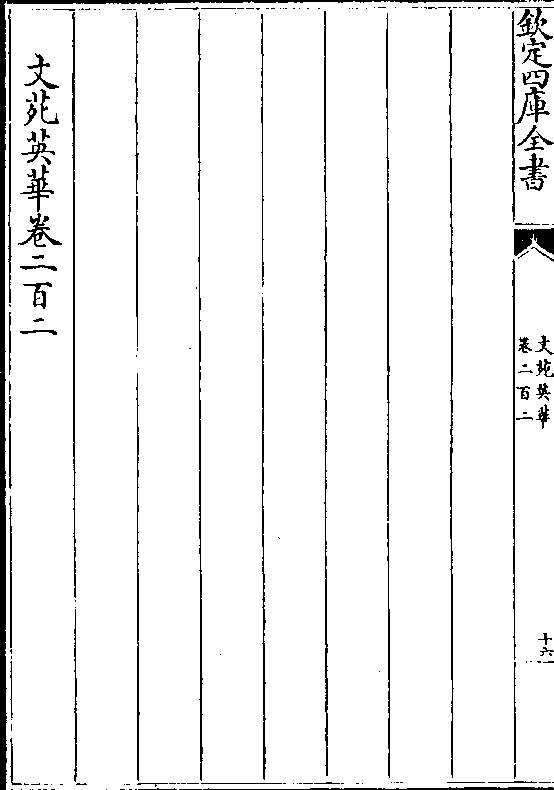 欽定四庫全書
文苑英華
卷二百二
十六
文苑英華卷二百二